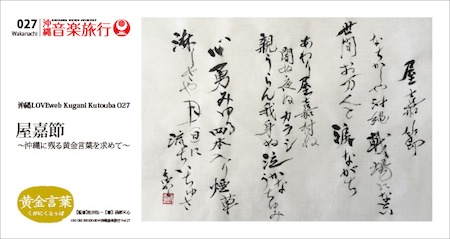 027
Wakanachi
沖縄
音楽旅行
沖縄LOVEweb Kugani Kutouba 027
屋嘉節
〜沖縄に残る黄金言葉を求めて〜
黄金言葉
くがにくとぅば
屋嘉節
なちかしや沖縄 戦場に
世間お万人と 涙ながち
あわり屋嘉村ぬ
闇ぬ夜ぬカラシ
親うらん我身ぬ 泣かなうちゅみ
心勇みゆる 四本入り煙草
淋しさや月に 流ちいちゅさ